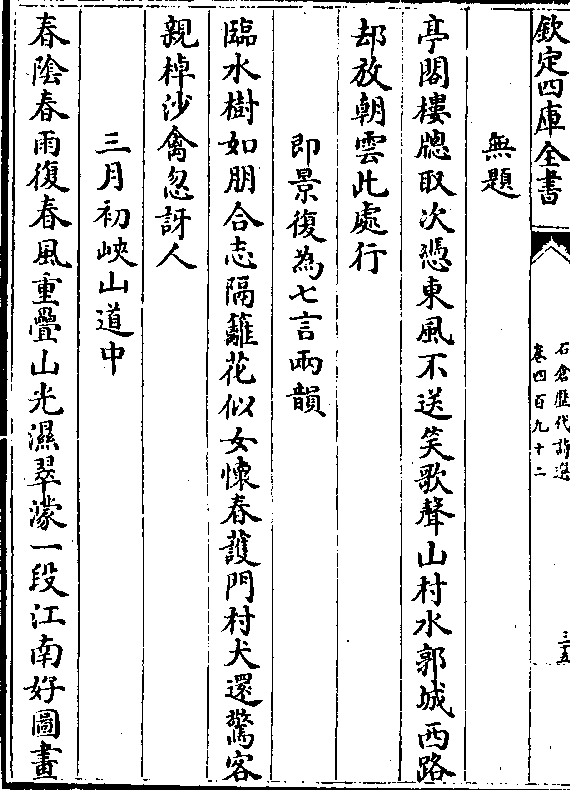 欽定四庫全書
石倉歷代詩選
卷四百九十二
三五
無題
亭閣樓牕取次憑東風不送笑歌聲山村水郭城西路
却放朝雲此處行
即景復為七言兩韻
臨水樹如朋合志隔籬花似女懷春護門村犬還驚客
親棹沙禽忽訝人
三月初峽山道中
春陰春雨復春風重疊山光濕翠濛一段江南好圖畫